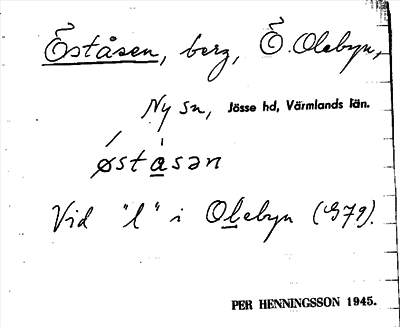 Ẽståsen, berg, Ẽ. Olebyn,
Ny sn, Jösse hd, Värmlands län.
østasən
Vid "l" i Olebyn (G79).
PER HENNINGSSON 1945.